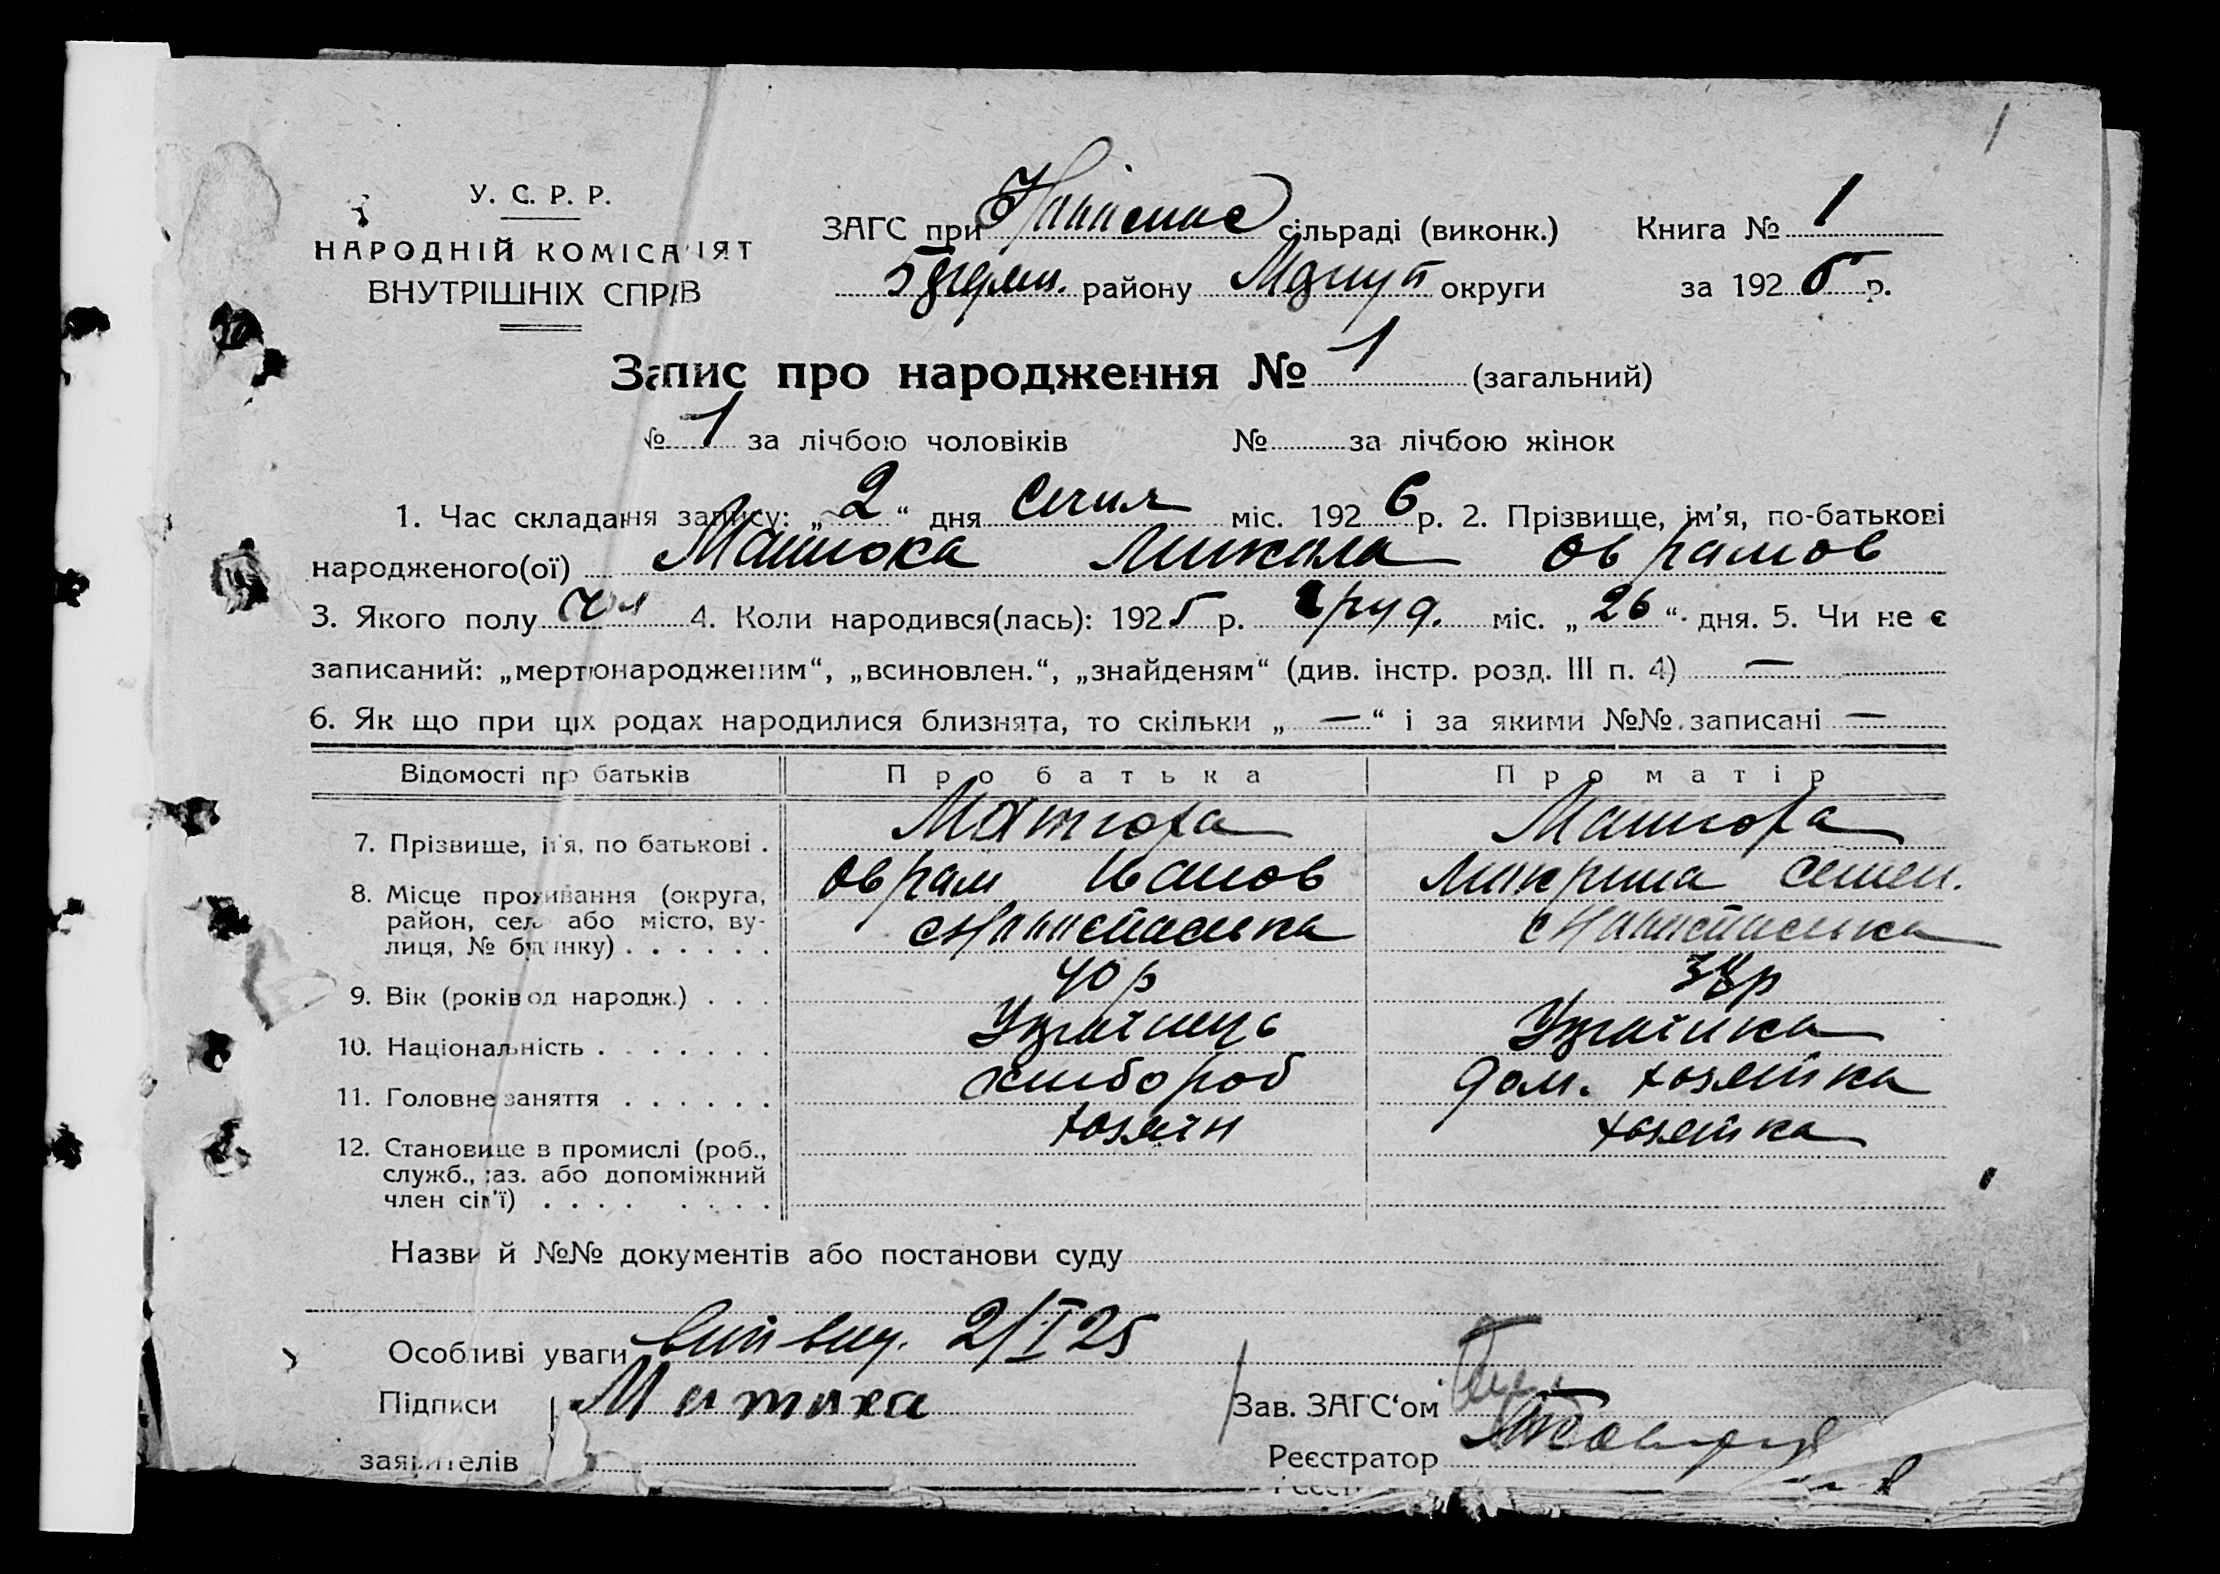 1
У. С. Р. Р.
НАРОДНІЙ КОМІСАРІЯТ
ВНУТРІШНІХ СПРІВ
ЗАГС при сільраді (виконк.) Книга № 1
району округи за 1925 р.
Запис про народження № 1 (загальний)
№ 1 за лічбою чоловіків № за лічбою жінок
1. Час складання запису: „2“ дня Січня міс. 1926 р. 2. Прізвище, ім'я, по-батькові
народженого(ої) Микола Оврамов
3. Якого полу чол 4. Коли народився(лась): 1925 р. груд. міс. „26“ дня. 5. Чи не є
записаний: „мертвонародженим“, „всиновлен.“, „знайденям“ (див. інстр. розд. III п. 4) —
6. Як що при ціх родах народилися близнята, то скільки „—“ і за якими №№ записані —
Відомості про батьків Про батька Про матір
7. Прізвище, ім'я, по батькові . Матюха Матюха
Оврам Іванов Мокрина Семен.
8. Місце проживання (округа,
район, село або місто, ву-
лиця, № будинку) . . . . . .
9. Вік (років од народж.) . . . 40 р
10. Національність . . . . . . . Українець Українка
11. Головне заняття . . . . . . хлібороб дом. хозяйка
12. Становище в промислі (роб., хозяїн хозяйка
служб., хаз. або допоміжний
член сім'ї) . . . . . . . .
Назви й №№ документів або постанови суду
Особливі уваги 2/I 25
Підписи Матюха Зав. ЗАГС‘ом
заявителів Реєстратор